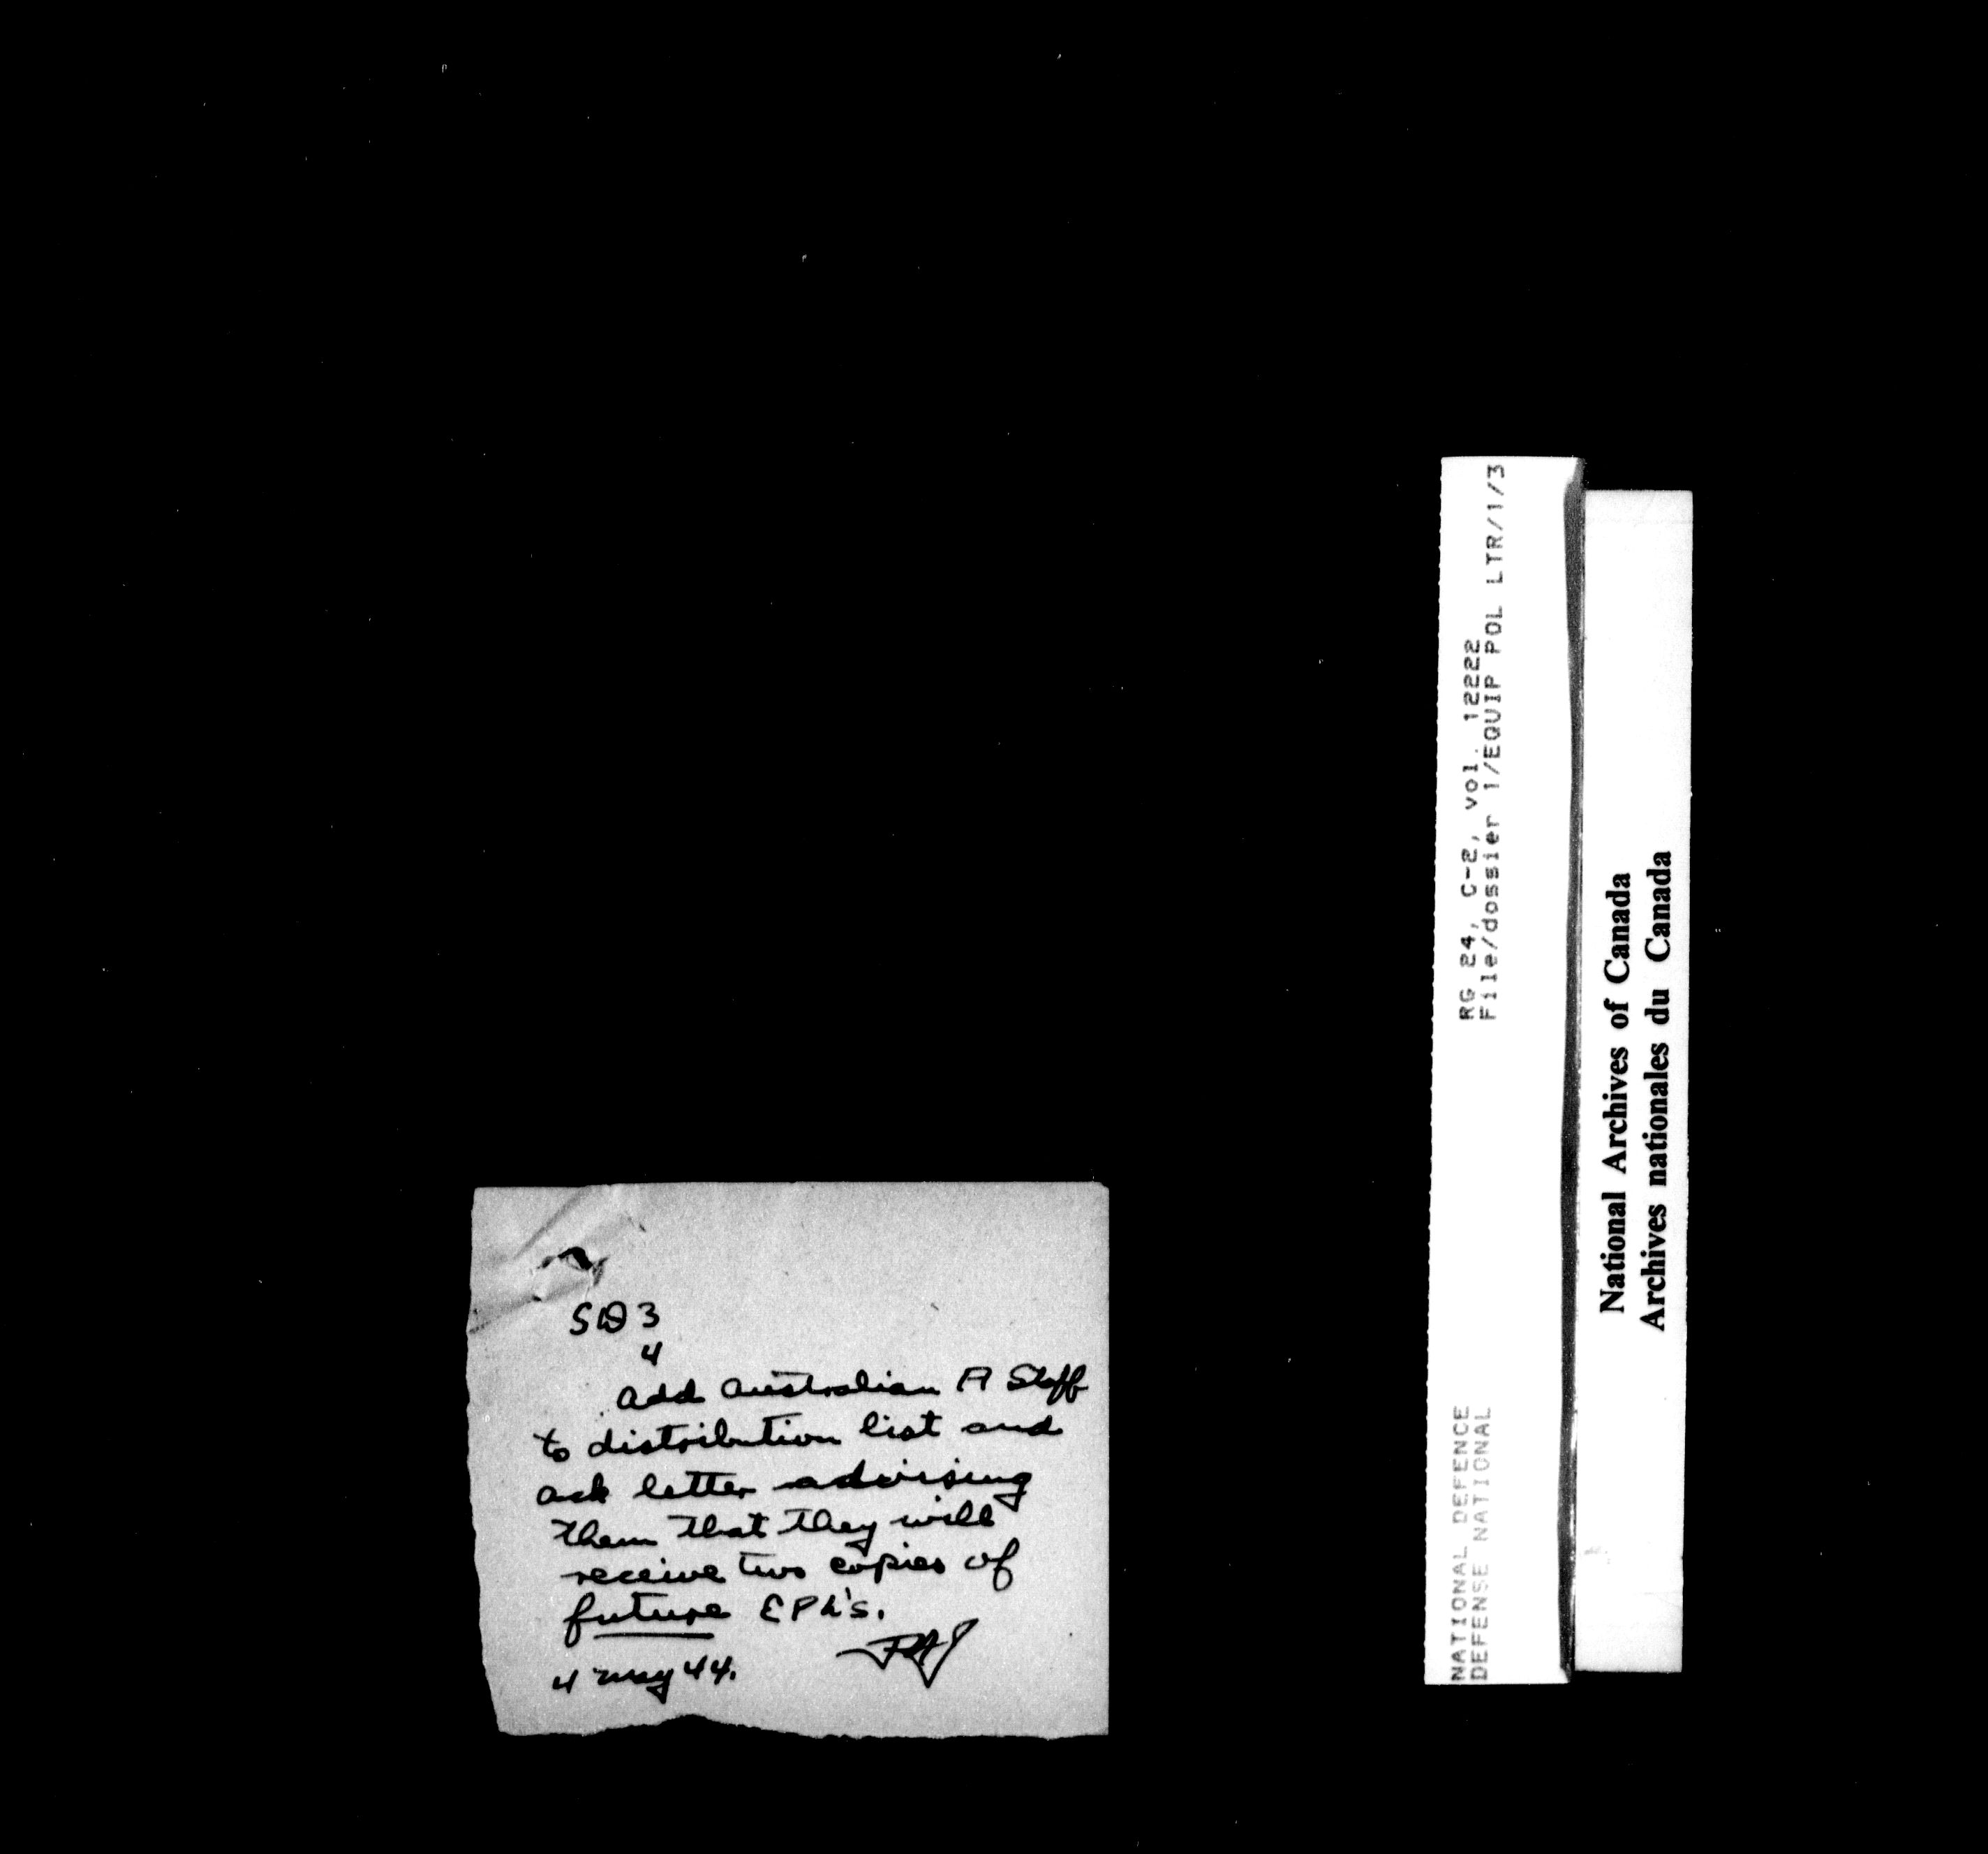 SD 3
4
Add Australian A Staff
to distribution list and
ack letter advising
them that they will
receive two copies of
future EPL's.
4 May 44.
RG 24, C-2, vol. 12222
File/dossier 1/EQUIP POL LTR/1/3
NATIONAL DEFENCE
DEFENSE NATIONAL
National Archives of Canada
Archives nationales du Canada